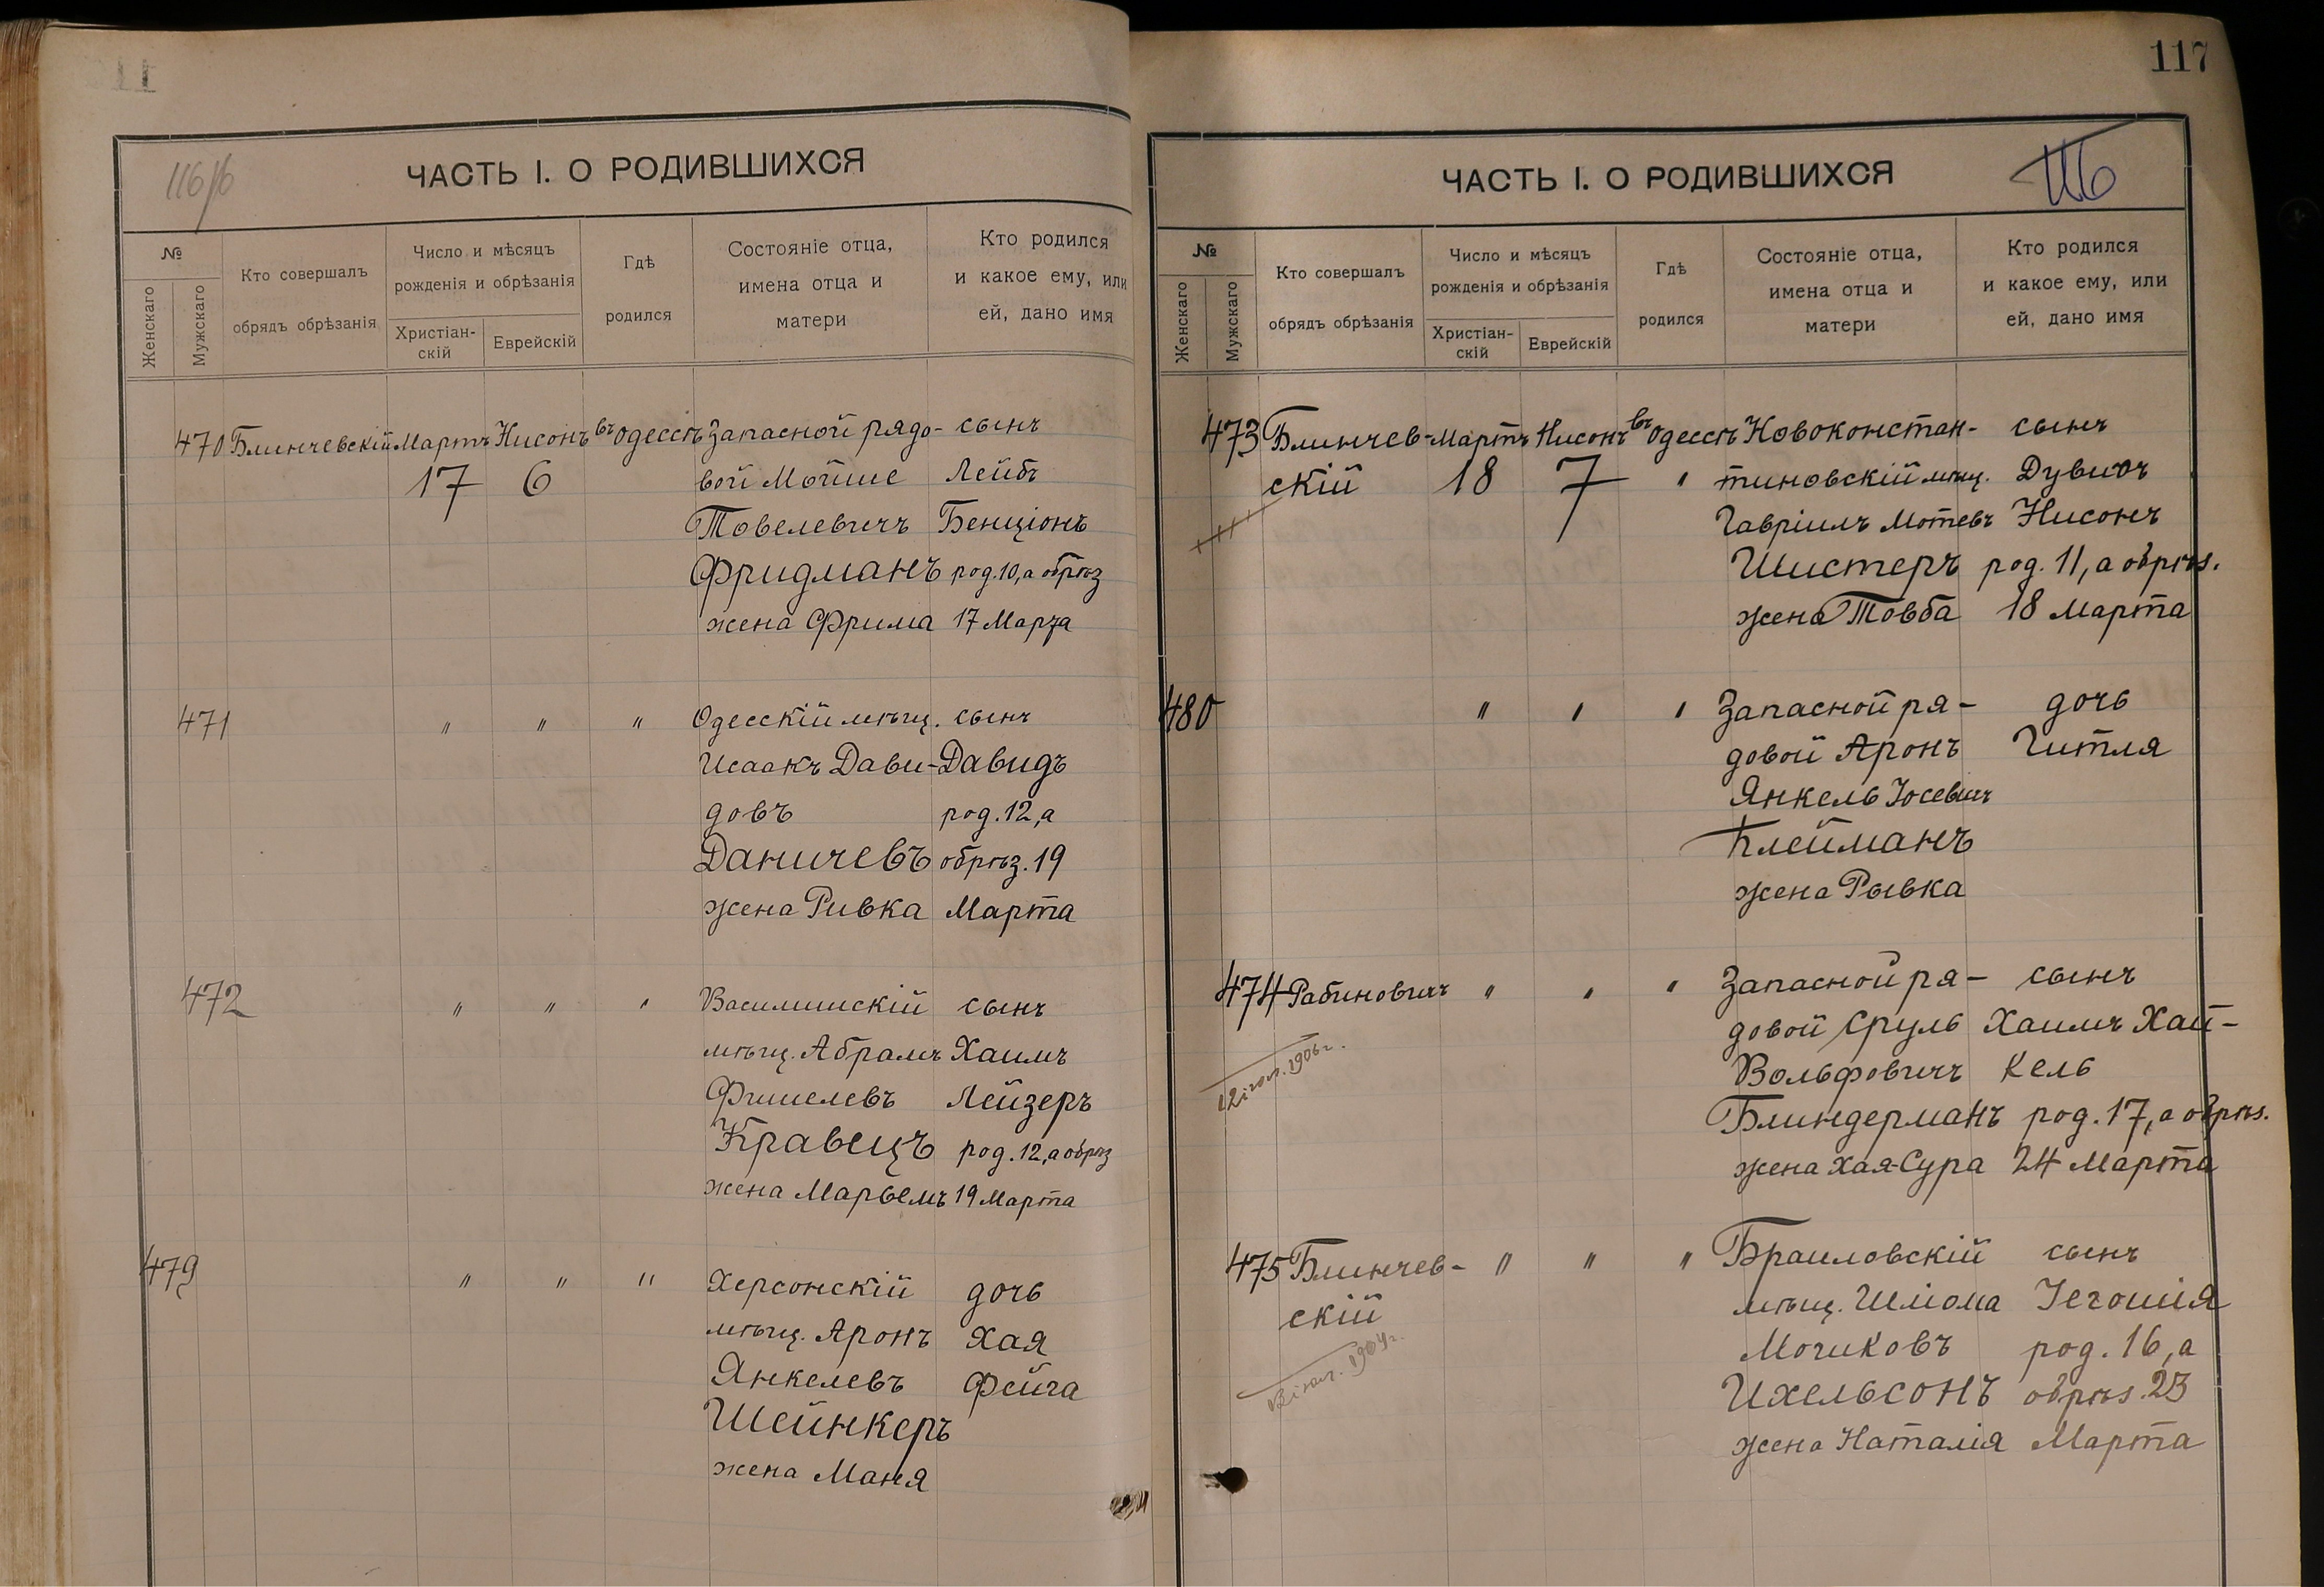 116/б
ЧАСТЬ I. О РОДИВШИХСЯ
№
Женскаго
Мужскаго
Кто совершалъ
обрядъ обрѣзанія
Число и мѣсяцъ
рожденія и обрѣзанія
Христіан-
скій
Еврейскій
Гдѣ
родился
Состояніе отца,
имена отца и
матери
Кто родился
и какое ему, или
ей, дано имя
470 Блинчевскій Мартъ Нисонъ въ Одессѣ Запасной рядо- сынъ
17 6 вой Мойше Лейбъ
Товелевичъ Бенціонъ
Фридманъ род. 10, а обрѣз
жена Фрима 17 Марта
471 " " " Одесскій мѣщ. сынъ
Исаакъ Дави- Давидъ
довъ род. 12, а
Даничевъ обрѣз. 19
жена Ривка Марта
472 " " " Василишскій сынъ
мѣщ. Абрамъ Хаимъ
Фишелевъ Лейзеръ
Кравецъ род. 12, а обрѣз
жена Марьемъ 19 Марта
479 " " " Херсонскій дочь
мѣщ. Аронъ Хая
Янкелевъ Фейга
Шейнкеръ
жена Маня
117
ЧАСТЬ I. О РОДИВШИХСЯ
№
Женскаго
Мужскаго
Кто совершалъ
обрядъ обрѣзанія
Число и мѣсяцъ
рожденія и обрѣзанія
Христіан-
скій
Еврейскій
Гдѣ
родился
Состояніе отца,
имена отца и
матери
Кто родился
и какое ему, или
ей, дано имя
473 Блинчев- Мартъ Нисонъ въ Одессѣ Новоконстан- сынъ
скій 18 7 " тиновскій мѣщ. Дувидъ
Гавріилъ Мотевъ Нисонъ
Шистеръ род. 11, а обрѣз.
жена Товба 18 Марта
480 " " " Запасной ря- дочь
довой Аронъ Гитля
Янкель Іосевич
Клейманъ
жена Рывка
474 Рабиновичъ " " " Запасной ря- сынъ
довой Сруль Хаимъ Хай-
Вольфовичъ кель
Блиндерманъ род. 17, а обрѣз.
жена Хая-Сура 24 Марта
1906 г.
475 Блинчев- " " " Браиловскій сынъ
скій мѣщ. Шліома Іегошія
Мочиковъ род. 16, а
Ихельсонъ обрѣз. 23
жена Наталія Марта